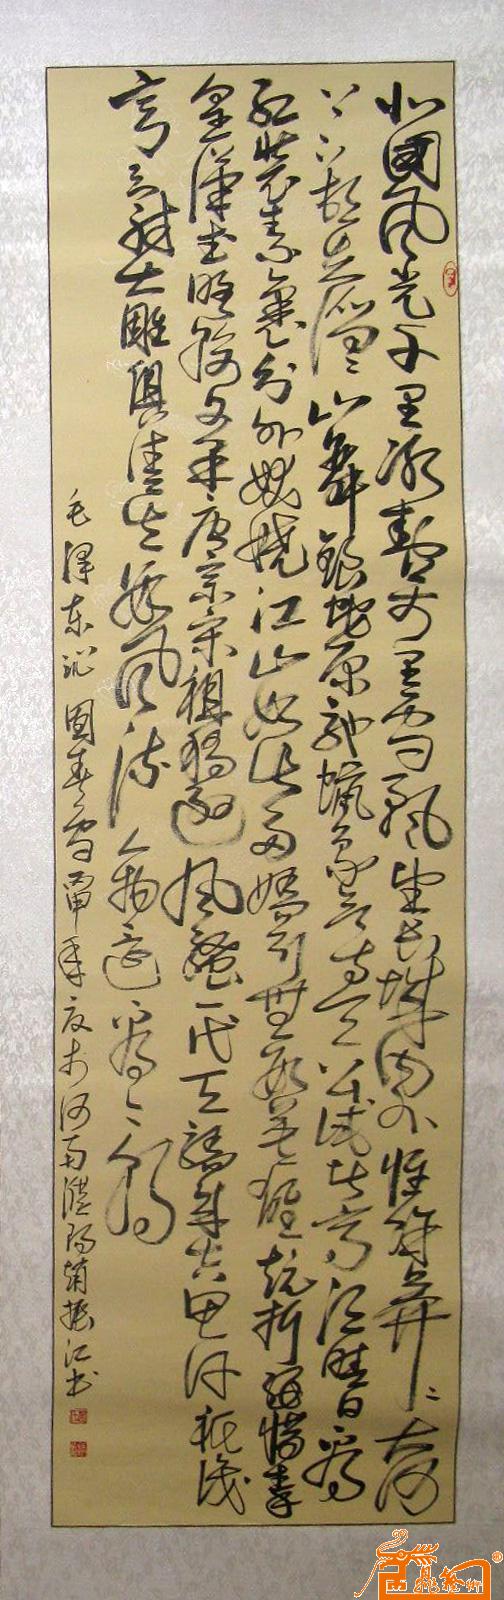 北國风光千里冰封万里雪飄望长城内外惟餘莽々大河
上下頓失滔々山舞銀蛇原馳蠟象欲与天公試比高须晴日看
红裝素裹分外妖嬈江山如此多嬌引無数英雄競折腰惜秦
皇漢武略输文采唐宗宋祖稍逊风騷一代天驕成吉思汗祇识
弯弓射大雕俱往矣数风流人物还看今朝
毛泽东沁园春雪 申年夏于河南濮阳 振江书